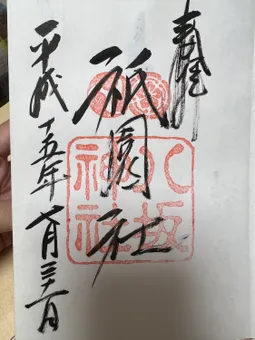 奉拝
祇園社
八坂神社
平成十五年七月三十一日